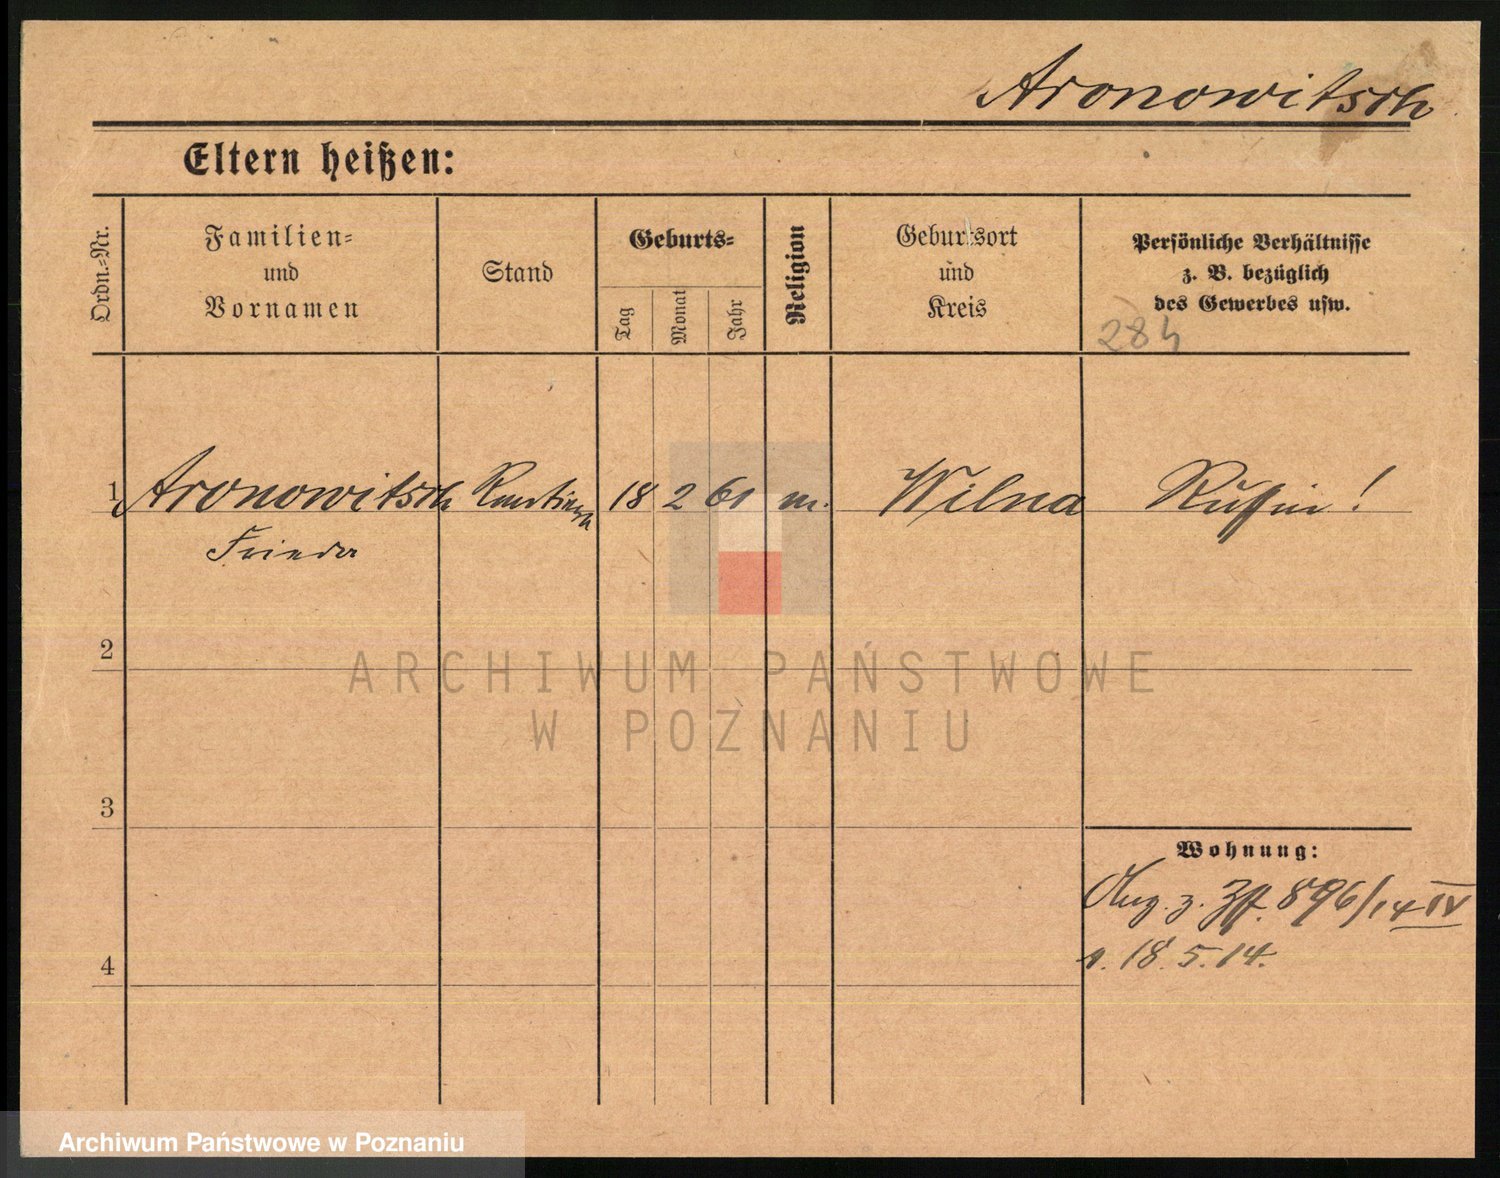 Aronowitsch
Eltern heißen:
Ordn.-Nr.
Familien-
und
Vornamen
Stand
Geburts-
Tag
Monat
Jahr
Religion
Geburtsort
und
Kreis
Persönliche Verhältnisse
z. B. bezüglich
des Gewerbes usw.
284
1 Aronowitsch 18 2 61 m. Wilna Russin!
Frieda
2
ARCHIWUM PAŃSTWOWE
W POZNANIU
3
Wohnung:
z. 896/14 IV
v. 18.5.14.
4
Archiwum Państwowe w Poznaniu